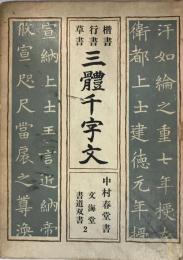 汗如綸之重七年授
衛都上士建德元年授
中村春堂書
文海堂
書道双書2
三體千字文
楷書
行書
草書
宣納上士王言近納帝
攸宣咫尺當之尊渙